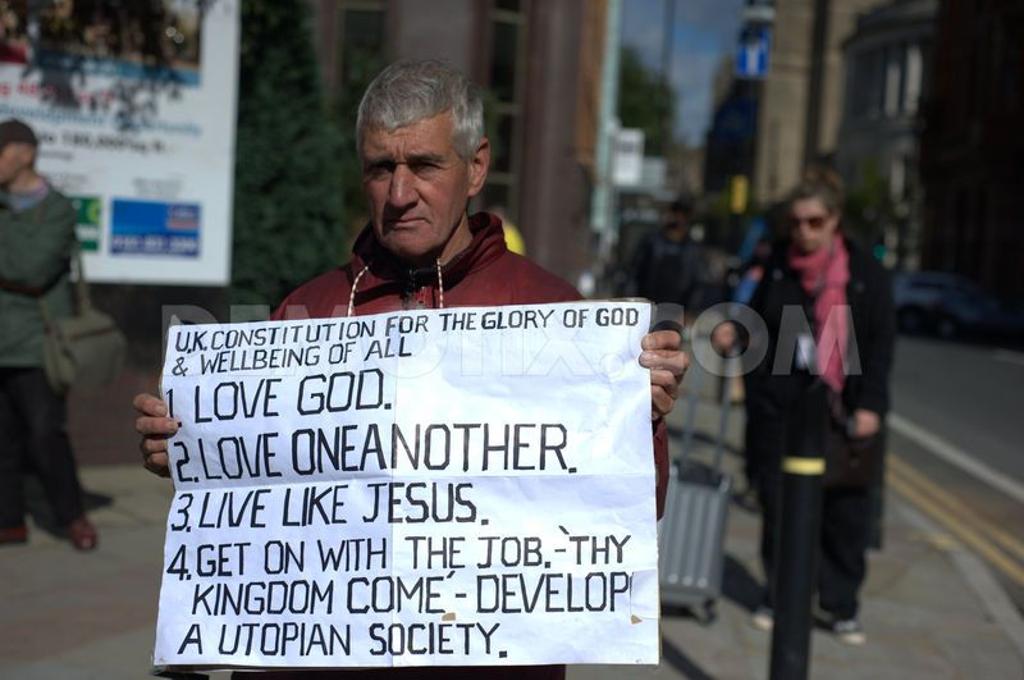 U.K. CONSTITUTION FOR THE GLORY OF GOD
& WELLBEING OF ALL
1. LOVE GOD.
2. LOVE ONEANOTHER.
3. LIVE LIKE JESUS.
4. GET ON WITH THE JOB.-'THY
KINGDOM COME'- DEVELOP
A UTOPIAN SOCIETY.